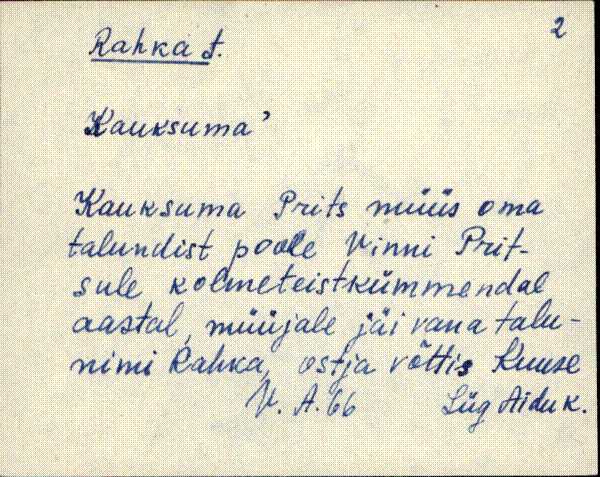 2
Rahka t.
Kauksuma'
Kauksuma Prits müüs oma
talundist poole Vinni Prit-
sule kolmeteistkümmendal
aastal, müüjale jäi vana talu-
nimi Rahka, ostja võttis Kuuse
V. A. 66 Lüg Aidu k.